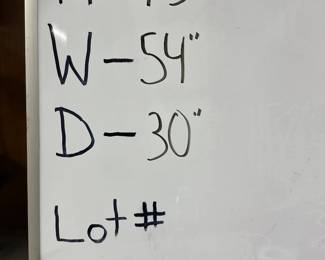 W - 54"
D - 30"
Lot #